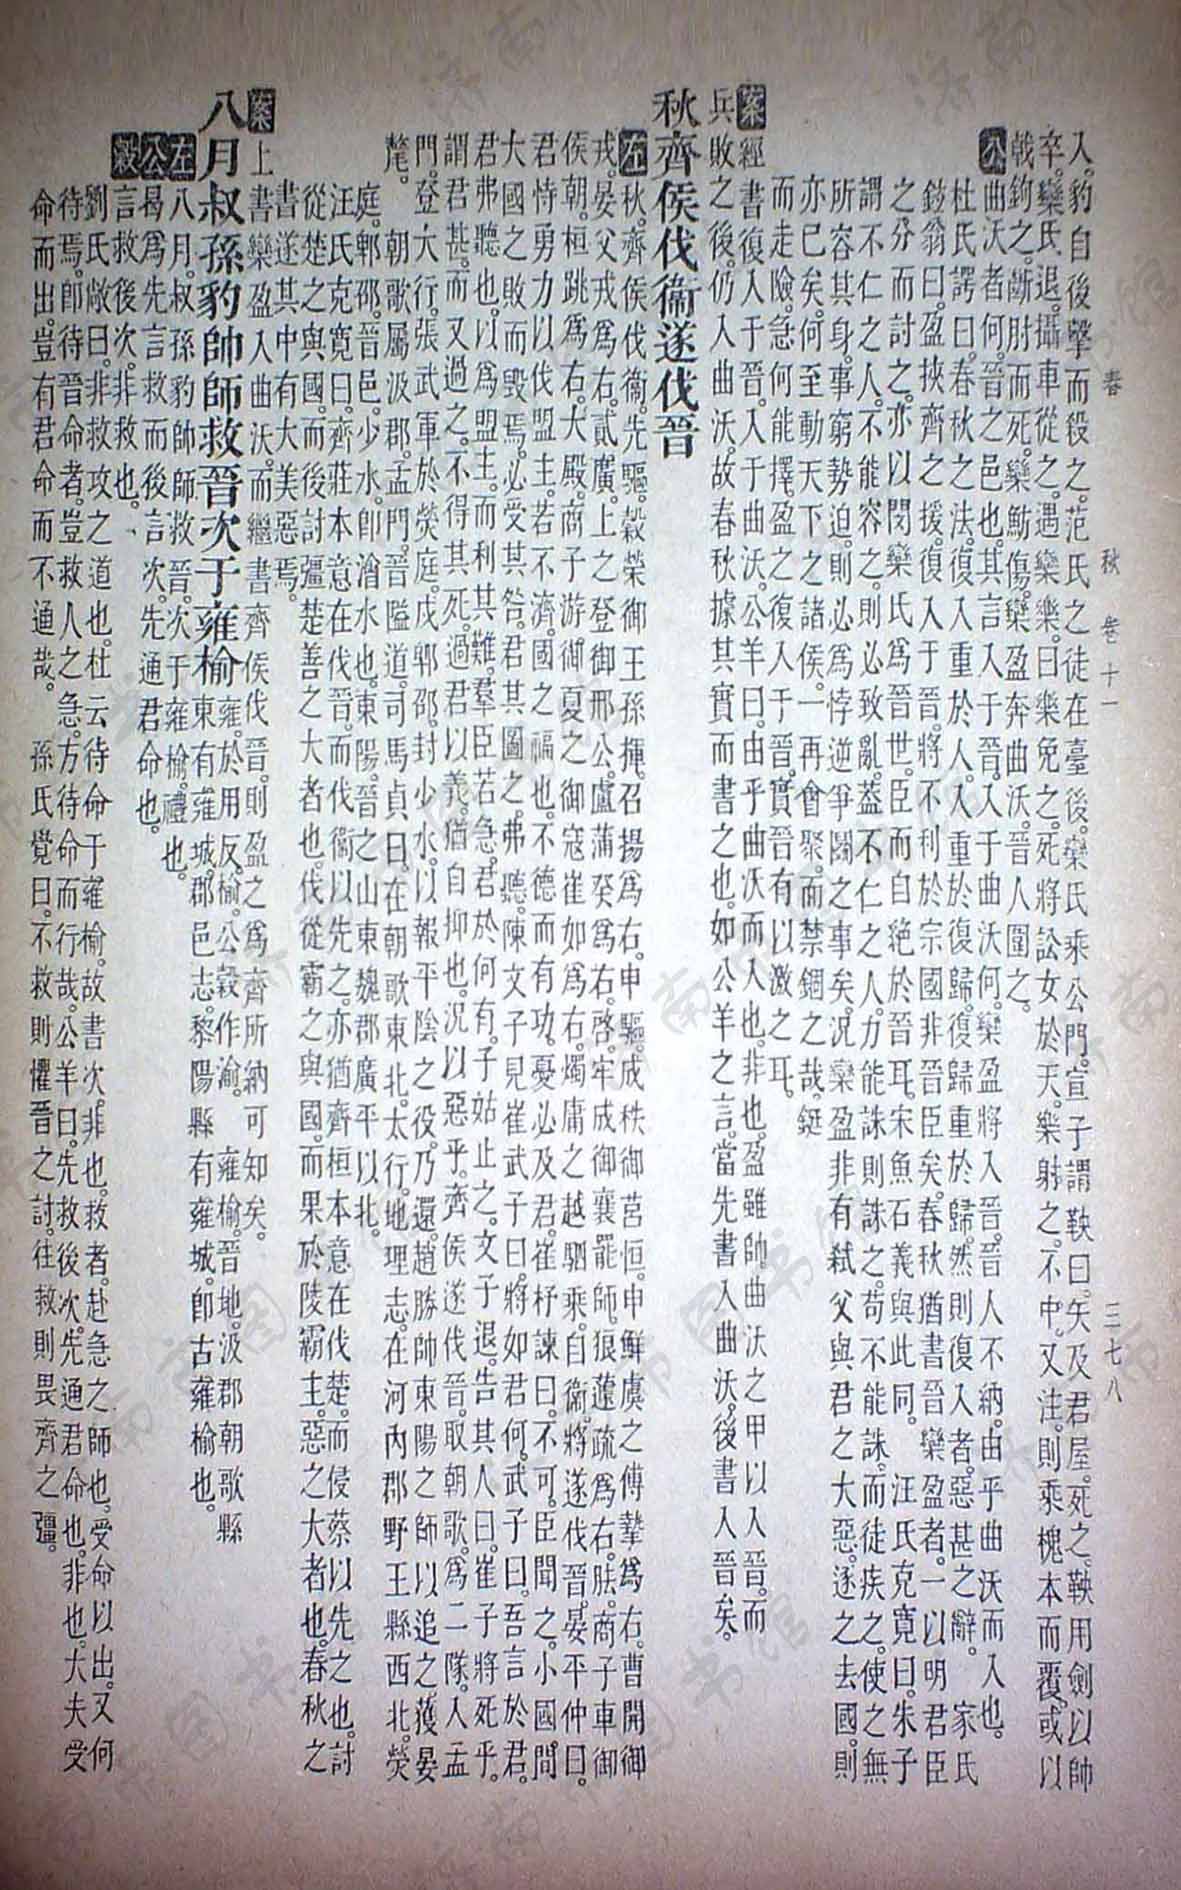 春秋 卷十一 三七八
入。豹自後擊而殺之。范氏之徒在臺後。欒氏乘公門。宣子謂鞅曰。矢及君屋。死之。鞅用劍以帥
卒。欒氏退。攝車從之。遇欒樂。曰樂免之。死將訟女於天。樂射之。不中。又注。則乘槐本而覆。或以
戟鉤之。斷肘而死。欒魴傷。欒盈奔曲沃。晉人圍之。
公 曲沃者何。晉之邑也。其言入于晉。入于曲沃何。欒盈將入晉。晉人不納。由乎曲沃而入也。
杜氏諤曰。春秋之法。復入重於入。入重於復歸。復歸重於歸。然則復入者。惡甚之辭。 家氏
鉉翁曰。盈挾齊之援。復入于晉。將不利於宗國。非晉臣矣。春秋猶書晉欒盈者。一以明君臣
之分而討之。亦以閔欒氏爲晉世臣。而自絕於晉耳。宋魚石義與此同。 汪氏克寬曰。朱子
謂不仁之人。不能容之。則必致亂。蓋不仁之人。力能誅則誅之。苟不能誅。而徒疾之。使之無
所容其身。事窮勢迫。則必爲悖逆爭鬭之事矣。況欒盈非有弑父與君之大惡。逐之去國。則
亦已矣。何至動天下之諸侯。一再會聚。而禁錮之哉。鋌
而走險。急何能擇。盈之復入于晉。實晉有以激之耳。
案 經書復入于晉。入于曲沃。公羊曰。由乎曲沃而入也。非也。盈雖帥曲沃之甲以入晉。而
兵敗之後。仍入曲沃。故春秋據其實而書之也。如公羊之言。當先書入曲沃。後書入晉矣。
秋齊侯伐衞遂伐晉
左 秋。齊侯伐衞。先驅。穀榮御王孫揮。召揚爲右。申驅。成秩御莒恒。申鮮虞之傅摯爲右。曹開御
戎。晏父戎爲右。貳廣。上之登御邢公。盧蒲癸爲右。啓。牢成御襄罷師。狼蘧疏爲右。胠。商子車御
侯朝。桓跳爲右。大殿。商子游御夏之御寇。崔如爲右。燭庸之越駟乘。自衞將遂伐晉。晏平仲曰。
君恃勇力以伐盟主。若不濟。國之福也。不德而有功。憂必及君。崔杼諫曰。不可。臣聞之。小國間
大國之敗而毀焉。必受其咎。君其圖之。弗聽。陳文子見崔武子曰。將如君何。武子曰。吾言於君。
君弗聽也。以爲盟主。而利其難。羣臣若急。君於何有。子姑止之。文子退。告其人曰。崔子將死乎。
謂君甚。而又過之。不得其死。過君以義。猶自抑也。況以惡乎。齊侯遂伐晉。取朝歌。爲二隊。入孟
門。登大行。張武軍於熒庭。戍郫邵。封少水。以報平陰之役。乃還。趙勝帥東陽之師以追之。獲晏
氂。 朝歌屬汲郡。孟門。晉隘道。司馬貞曰。在朝歌東北。太行。地理志。在河內郡野王縣西北。熒
庭。郫邵。晉邑。少水。卽澮水也。東陽。晉之山東魏郡廣平以北。
汪氏克寬曰。齊莊本意在伐晉。而伐衞以先之。亦猶齊桓本意在伐楚。而侵蔡以先之也。討
從楚之與國。而後討彊楚。善之大者也。伐從霸之與國。而果於陵霸主。惡之大者也。春秋之
書遂。其中有大美惡焉。
案 上書欒盈入曲沃。而繼書齊侯伐晉。則盈之爲齊所納可知矣。
八月叔孫豹帥師救晉次于雍榆 雍。於用反。榆。公穀作渝。 雍榆。晉地。汲郡朝歌縣
東有雍城。郡邑志。黎陽縣有雍城。卽古雍榆也。
左 八月。叔孫豹帥師救晉。次于雍榆。禮也。
公 曷爲先言救而後言次。先通君命也。
穀 言救後次。非救也。
劉氏敞曰。非救攻之道也。杜云待命于雍榆。故書次。非也。救者。赴急之師也。受命以出。又何
待焉。卽待晉命者。豈救人之急。方待命而行哉。公羊曰。先救後次。先通君命也。非也。大夫受
命而出。豈有君命而不通哉。 孫氏覺曰。不救則懼晉之討。往救則畏齊之彊。